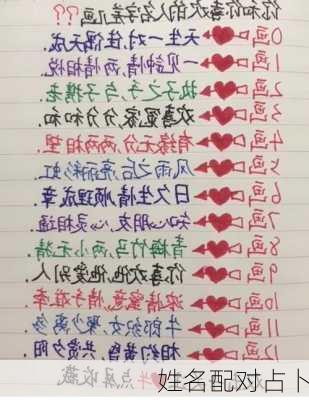 你和你喜欢的人名字差几画??
0画 天生一对,佳偶天成.
1画 一见钟情,两情相悦.
2画 执子之手,与子携老.
3画 欢喜冤家,分分和和.
4画 有缘无分,两两相望.
5画 风雨之后,亮丽彩虹.
6画 日久生情,顺理成章.
7画 知心朋友,心灵相通.
8画 青梅竹马,两小无猜.
9画 你喜欢他,他爱别人
10画 浓情蜜意,
11画 牛郎织女,聚少离多
12画 相约黄昏,共赏夕阳
点屏收藏
姓名配对占卜